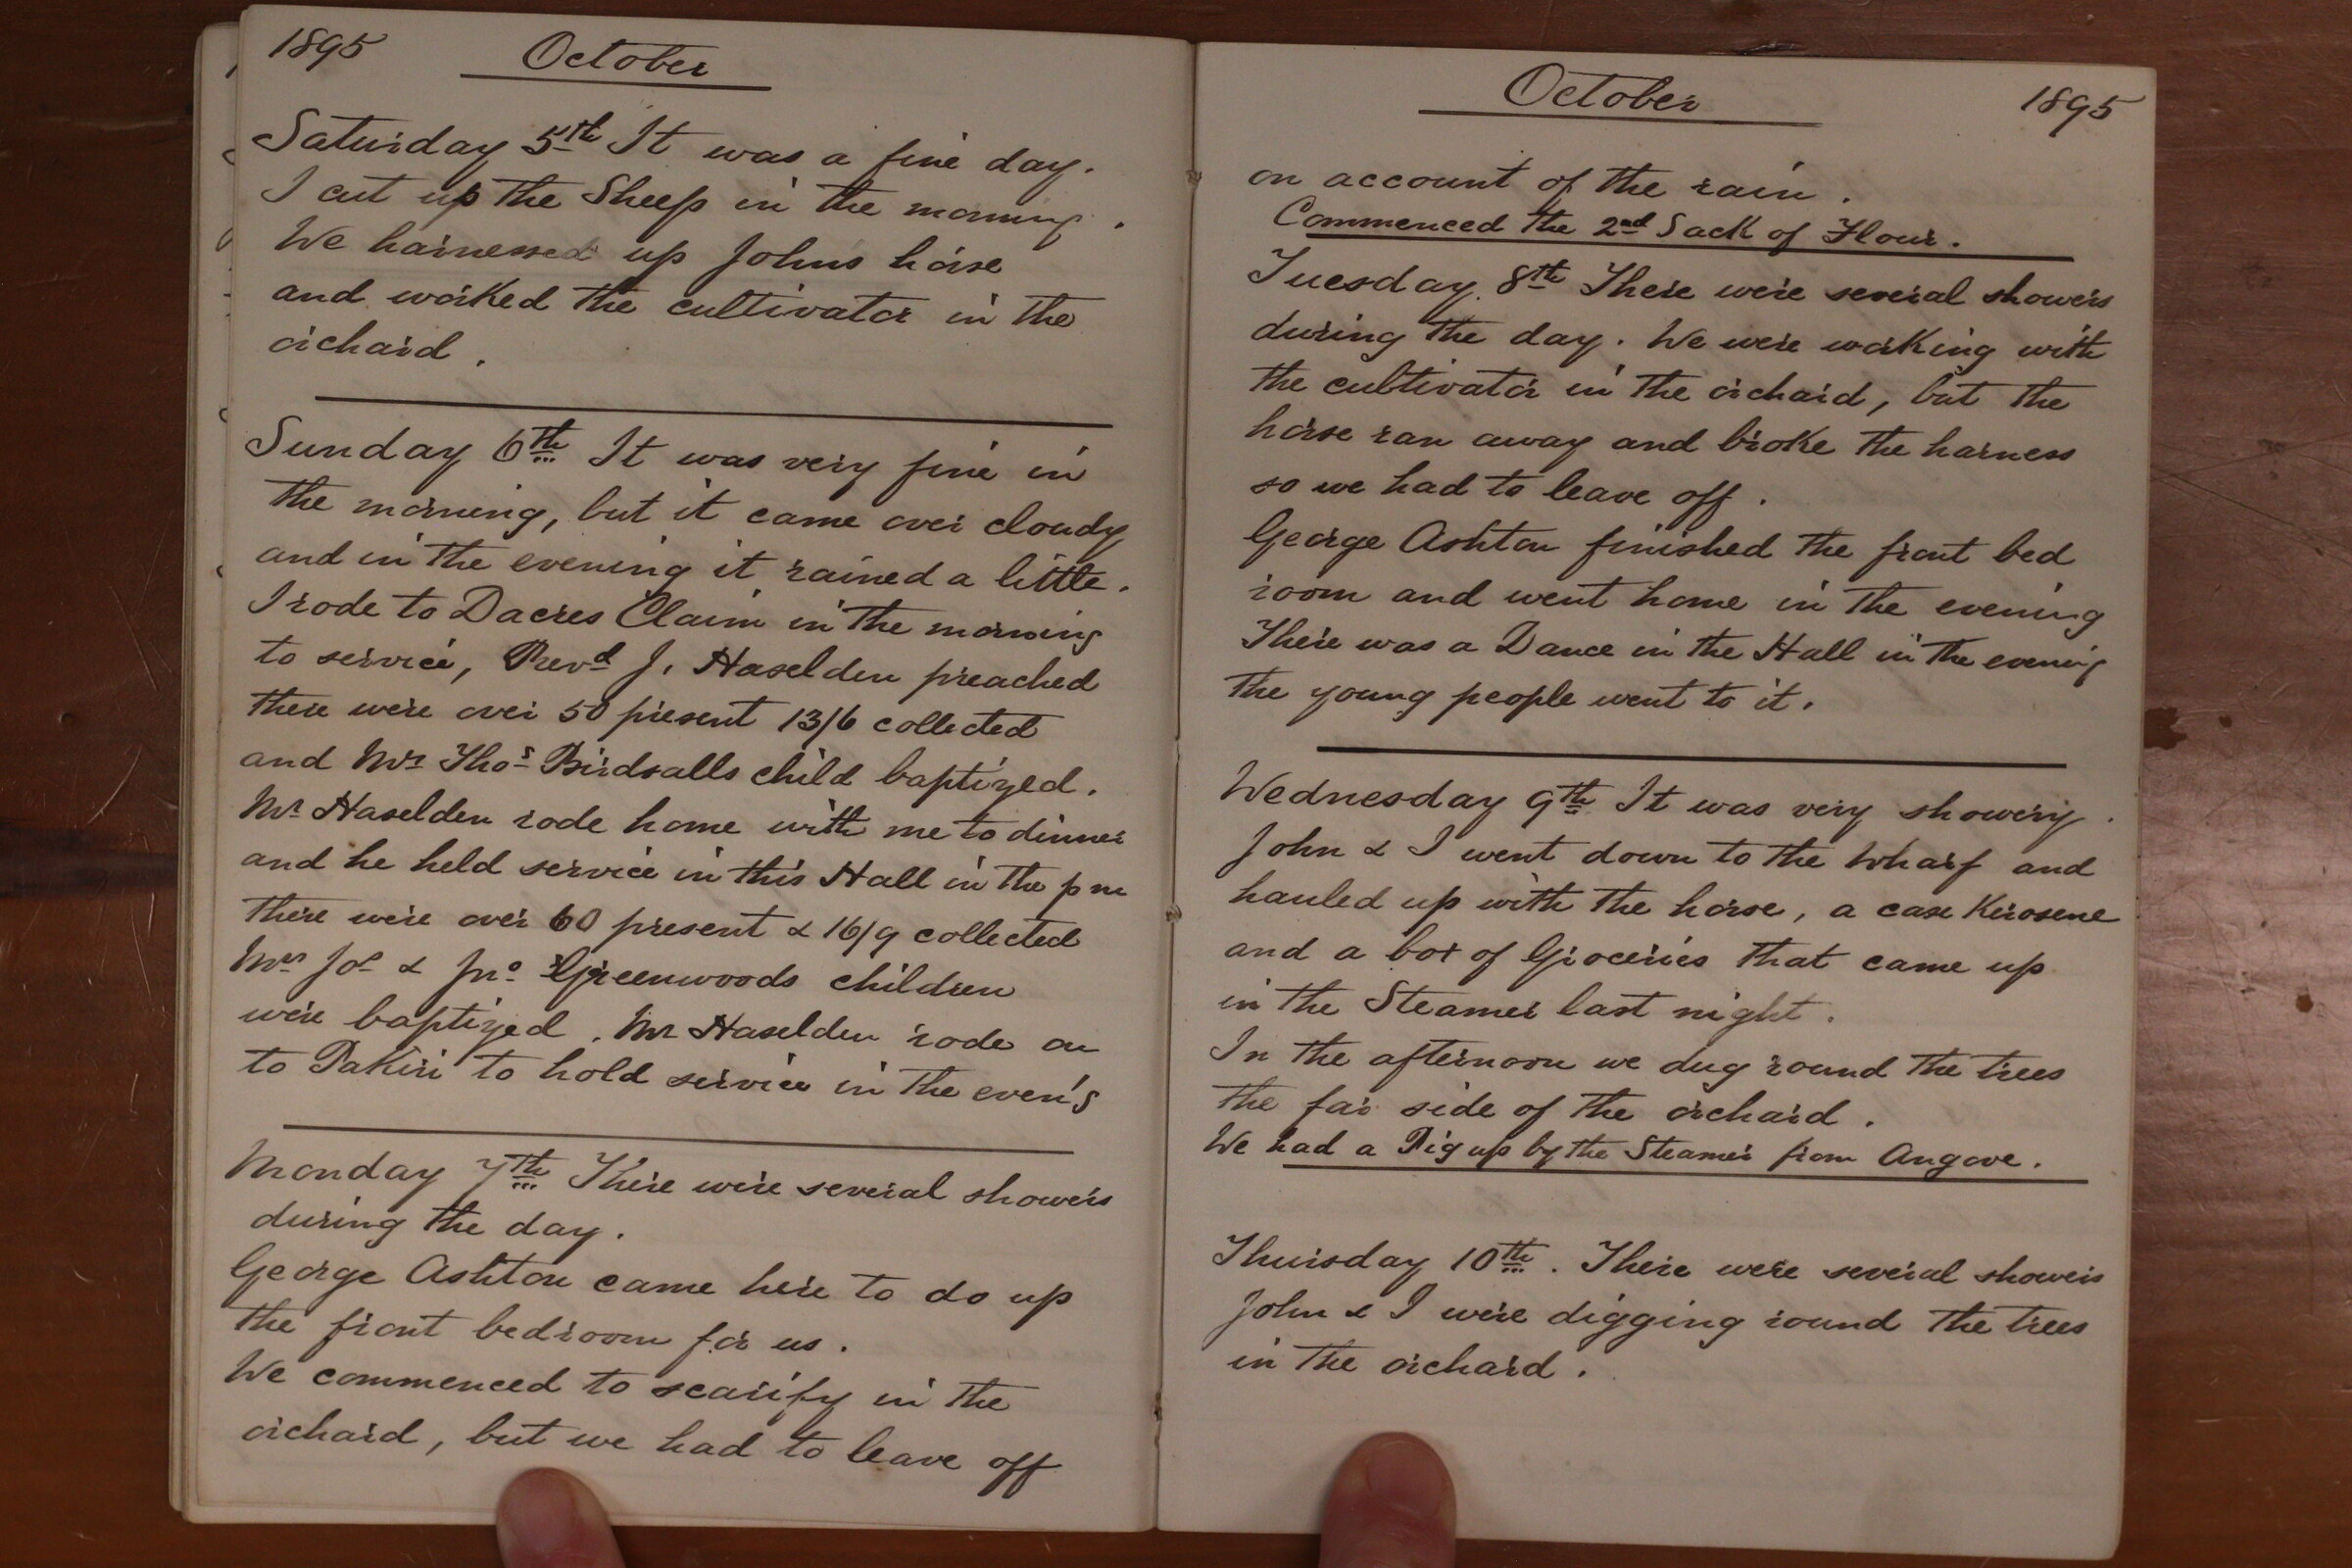 1895 October
Saturday 5th It was a fine day.
I cut up the Sheep in the morning.
We harnessed up Johns horse
and worked the cultivator in the
orchard.
Sunday 6th It was very fine in
the morning, but it came over cloudy
and in the evening it rained a little.
I rode to Dacres Claim in the morning
to service, Revd J. Haselden preached
there were over 50 present 13/6 collected
and Mrs Thos Birdsalls child baptized.
Mr Haselden rode home with me to dinner
and he held service in this Hall in the pm
there were over 60 present & 16/9 collected
Mrs Jos & Jno Greenwoods children
were baptized. Mr Haselden rode on
to Pakiri to hold service in the even'g
Monday 7th There were several showers
during the day.
George Ashton came here to do up
the front bedroom for us.
We commenced to scarify in the
orchard, but we had to leave off
October 1895
on account of the rain.
Commenced the 2nd Sack of Flour.
Tuesday 8th There were several showers
during the day. We were working with
the cultivator in the orchard, but the
horse ran away and broke the harness
so we had to leave off.
George Ashton finished the front bed
room and went home in the evening
There was a Dance in the Hall in the evening
the young people went to it.
Wednesday 9th It was very showery.
John & I went down to the wharf and
hauled up with the horse, a case Kerosene
and a box of Groceries that came up
in the Steamer last night.
In the afternoon we dug round the trees
the far side of the orchard.
We had a Pig up by the Steamer from Angove.
Thursday 10th. There were several showers
John & I were digging round the trees
in the orchard.